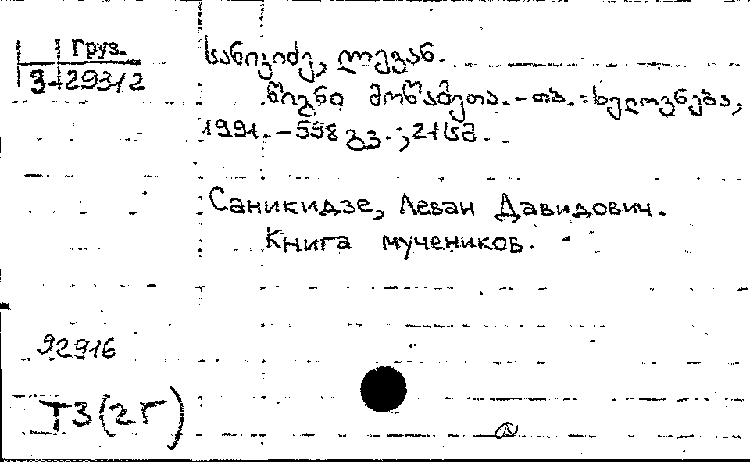 Груз.
3-29312
სანიკიძე, ლევან.
წიგნი მოწამეთა. - თბ. : ხელოვნება,
1991. - 598 გვ. ; 21 სმ.
Саникидзе, Леван Давидович.
Книга мучеников.
92916
Т3(2Г)